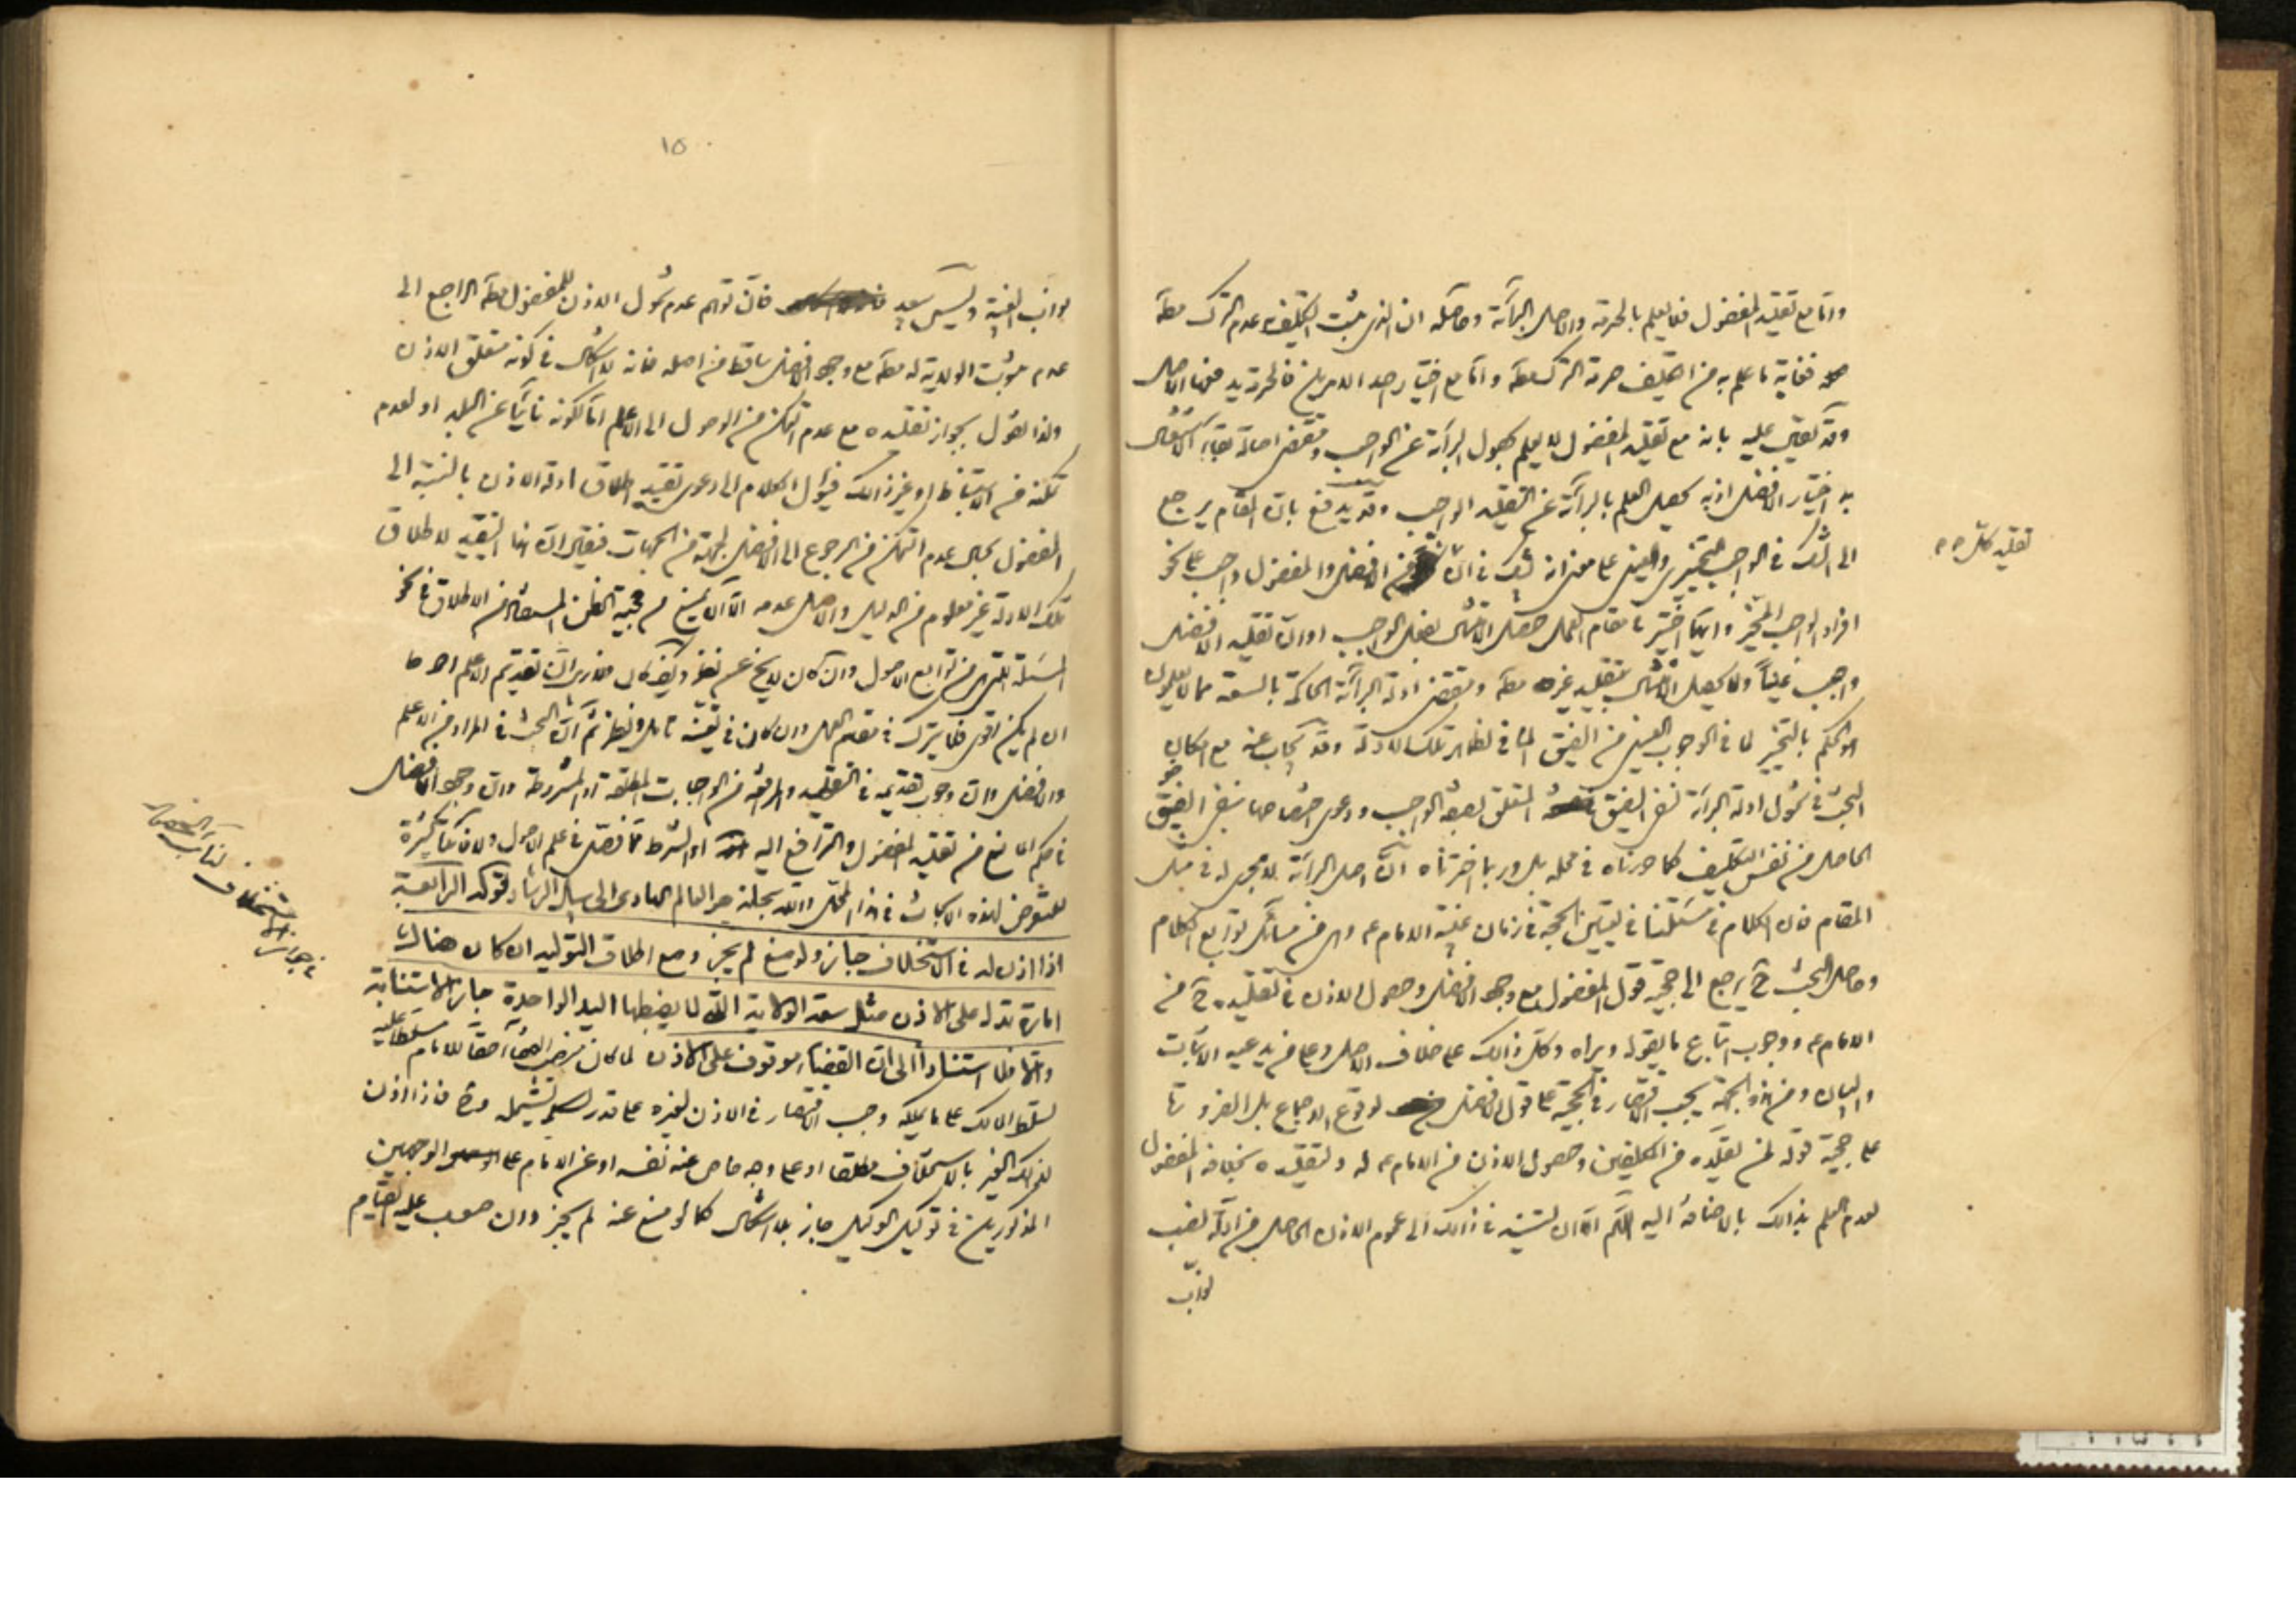 وامّا مع تقليد المفضول فلا يعلم بالحرمة والاصل البرائة وحاصله ان الذي يثبت التكليف به عدم الترك مطلقا
فغاية ما علم به من التكليف حرمة الترك مطلقا وامّا مع اختيار احد الامرين فالحرمة
وقد يعترض عليه بانه مع تقليد المفضول لا يعلم بحصول البرائة عن الواجب ومقتضى اصالة بقاء الاشتغال
به اختيار الافضل اذ به يحصل العلم بالبرائة عن التقليد الواجب وقد يدفع بان المقام يرجع
الى الشك في الواجب التخييري والعيني على معنى انه يشك في ان من الافضل والمفضول واجب على نحو
افراد الواجب المخيّر وايهما اختير في مقام العمل حصل الامتثال بفعل الواجب او ان تقليد الافضل
واجب عيناً ولا يحصل الامتثال بتقليد غيره مطلقا ومقتضى ادلة البرائة الحاكمة بالسعة مما لا يعلمون
هو الحكم بالتخيير لما في الوجوب العيني من الضيق المنافي لظاهر تلك الادلة وقد يجاب عنه مع امكان
البحث في شمول ادلة البرائة لنفي الضيق المتعلق بصفة الواجب ودعوى اختصاصها بنفي الضيق
الحاصل من نفس التكليف كما حررناه في محله بل وربما اخترناه انّ اصل البرائة لا مجرى له في مثل
المقام فان الكلام في مسئلتنا في تعيين الحجة في زمان غيبة الامام ع وهي من مسائل توابع الكلام
وحاصل البحث ح يرجع الى حجية قول المفضول مع وجود الافضل وحصول الاذن في تقليده ح من
الامام ع ووجوب اتباع ما يقوله ويراه وكل ذالك على خلاف الاصل وعلى مدعيه الاثبات
والبيان ومن هذه الجهة يجب الاقتصار في الحجية على قول الافضل لوقوع الاجماع بل الضرورة
على حجية قوله لمن يقلده من المكلفين وحصول الاذن من الامام ع له ولتقليده بخلاف المفضول
لعدم العلم بذالك بالاضافة اليه اللهم الا ان يستند في ذالك الى عموم الاذن الحاصل من ادلة نصب
نواب
تقليد كل
١٥
نواب الغيبة وليس ببعيد فانّ توهم عدم شمول الاذن للمفضول مطلقا الراجع الى
عدم ثبوت الولاية له مطلقا مع وجود الافضل ساقط من اصله فانه لا اشكال في كونه متعلق الاذن
ولذا نقول بجواز تقليده مع عدم التمكن من الوصول الى الاعلم امّا لكونه نائياً عن البلد او لعدم
تمكنه من الاستنباط او غير ذالك فيؤل الكلام الى دعوى تقييد اطلاق ادلة الاذن بالنسبة الى
المفضول بحال عدم التمكن من الرجوع الى الافضل لجهة من الجهات فيقال ان هذا التقييد لاطلاق
تلك الادلة غير معلوم من الدليل والاصل عدمه الا ان يمنع من حجية الظن المستفاد من الاطلاق في نحو
المسئلة التي هي من توابع الاصول وان كان لا يخ عن نظر وكيف كان فلا ريب ان تقديم الاعلم احوط
ان لم يكن اقوى فلا يترك في مقام العمل وان كان في تعيّنه تامل ونظر ثم انّ البحث في المراد من الاعلم
والافضل وان وجوب تقديمه في التقليد والمرافعة من الواجبات المطلقة او المشروطة وان وجود الافضل
في حكم المانع من تقليد المفضول والترافع اليه او الشرط قد فصل في علم الاصول ولا فائدة كثيرة
للتعرض لهذه الابحاث في هذا المحل والله سبحانه هو العالم الهادي الى سبيل الرشاد قوله الرابعة
اذا اذن له في الاستخلاف جاز ولو منع لم يجز ومع اطلاق التولية ان كان هناك
امارة تدل على الاذن مثل سعة الولاية التي لا يضبطها اليد الواحدة جاز الاستنابة
والا فلا استناداً الى ان القضاء موقوف على الاذن لما كان منصب القضاء حقاً للامام مسلطا عليه
تسلط المالك على ما يملكه وجب الاقتصار في الاذن لغيره على قدر يشمله فاذا اذن
لذالك الغير بالاستخلاف مطلقا او على وجه خاص عنه نفسه او عن الامام على الوجهين
المذكورين في توكيل الوكيل جاز بلا اشكال كما لو منع عنه لم يجز وان صعب عليه القيام
في جواز استخلاف نائب